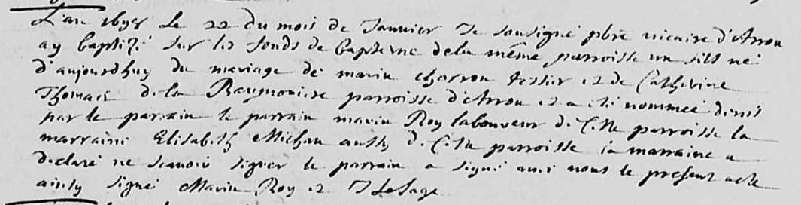 L'an 1698 Le 22 du mois de Janvier Je sousigné pbre vicaire d'Arrou
ay baptizé sur les fonds de baptesme de la même parroisse un fils né
d'aujourdhuy du mariage de marin charron tessier et de Catherine
Thomas de la Raymoniere parroisse d'Arrou et a été nommé denis
par le parrain le parrain marin Roy laboureur de Cette parroisse la
marraine Elisabeth Michau aussy de Cette parroisse la marraine a
declaré ne scavoir signer le parrain a signé avec nous le present acte
ainsy signé Marin Roy et J Lesage